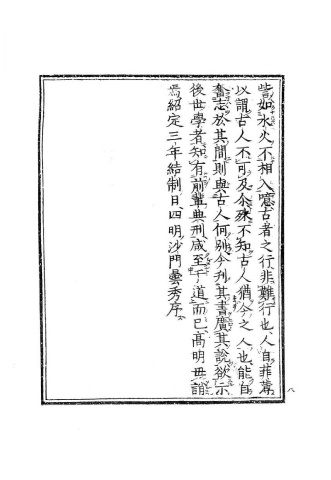 皆如水火不相入噫古者之行非難行也人自菲薄
以謂古人不可及余殊不知古人猶今之人也能自
奮志於其間則與古人何別今刋其書廣其說欲示
後世學者知有前輩典刑咸至于道而已高明毋誚
焉紹定三年結制日四明沙門曇秀序
八